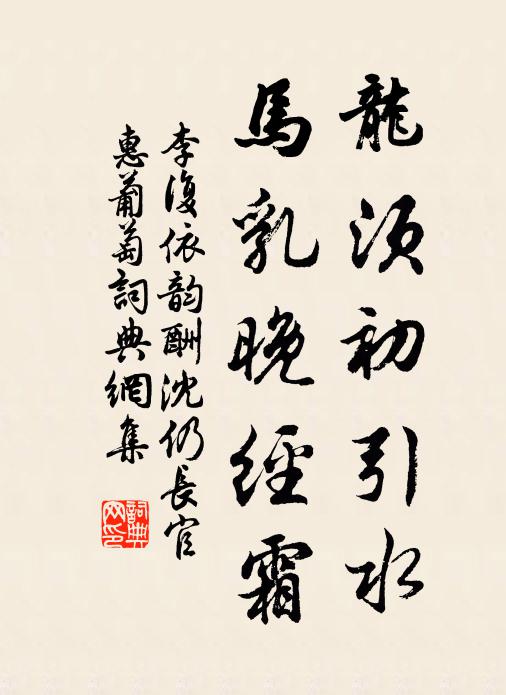 龍須初引水
馬乳晚經霜
李復依韵酬沈仍長官
惠葡萄詞典網集
詞典
网印